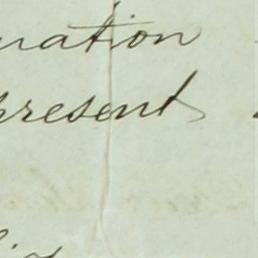 nation
present